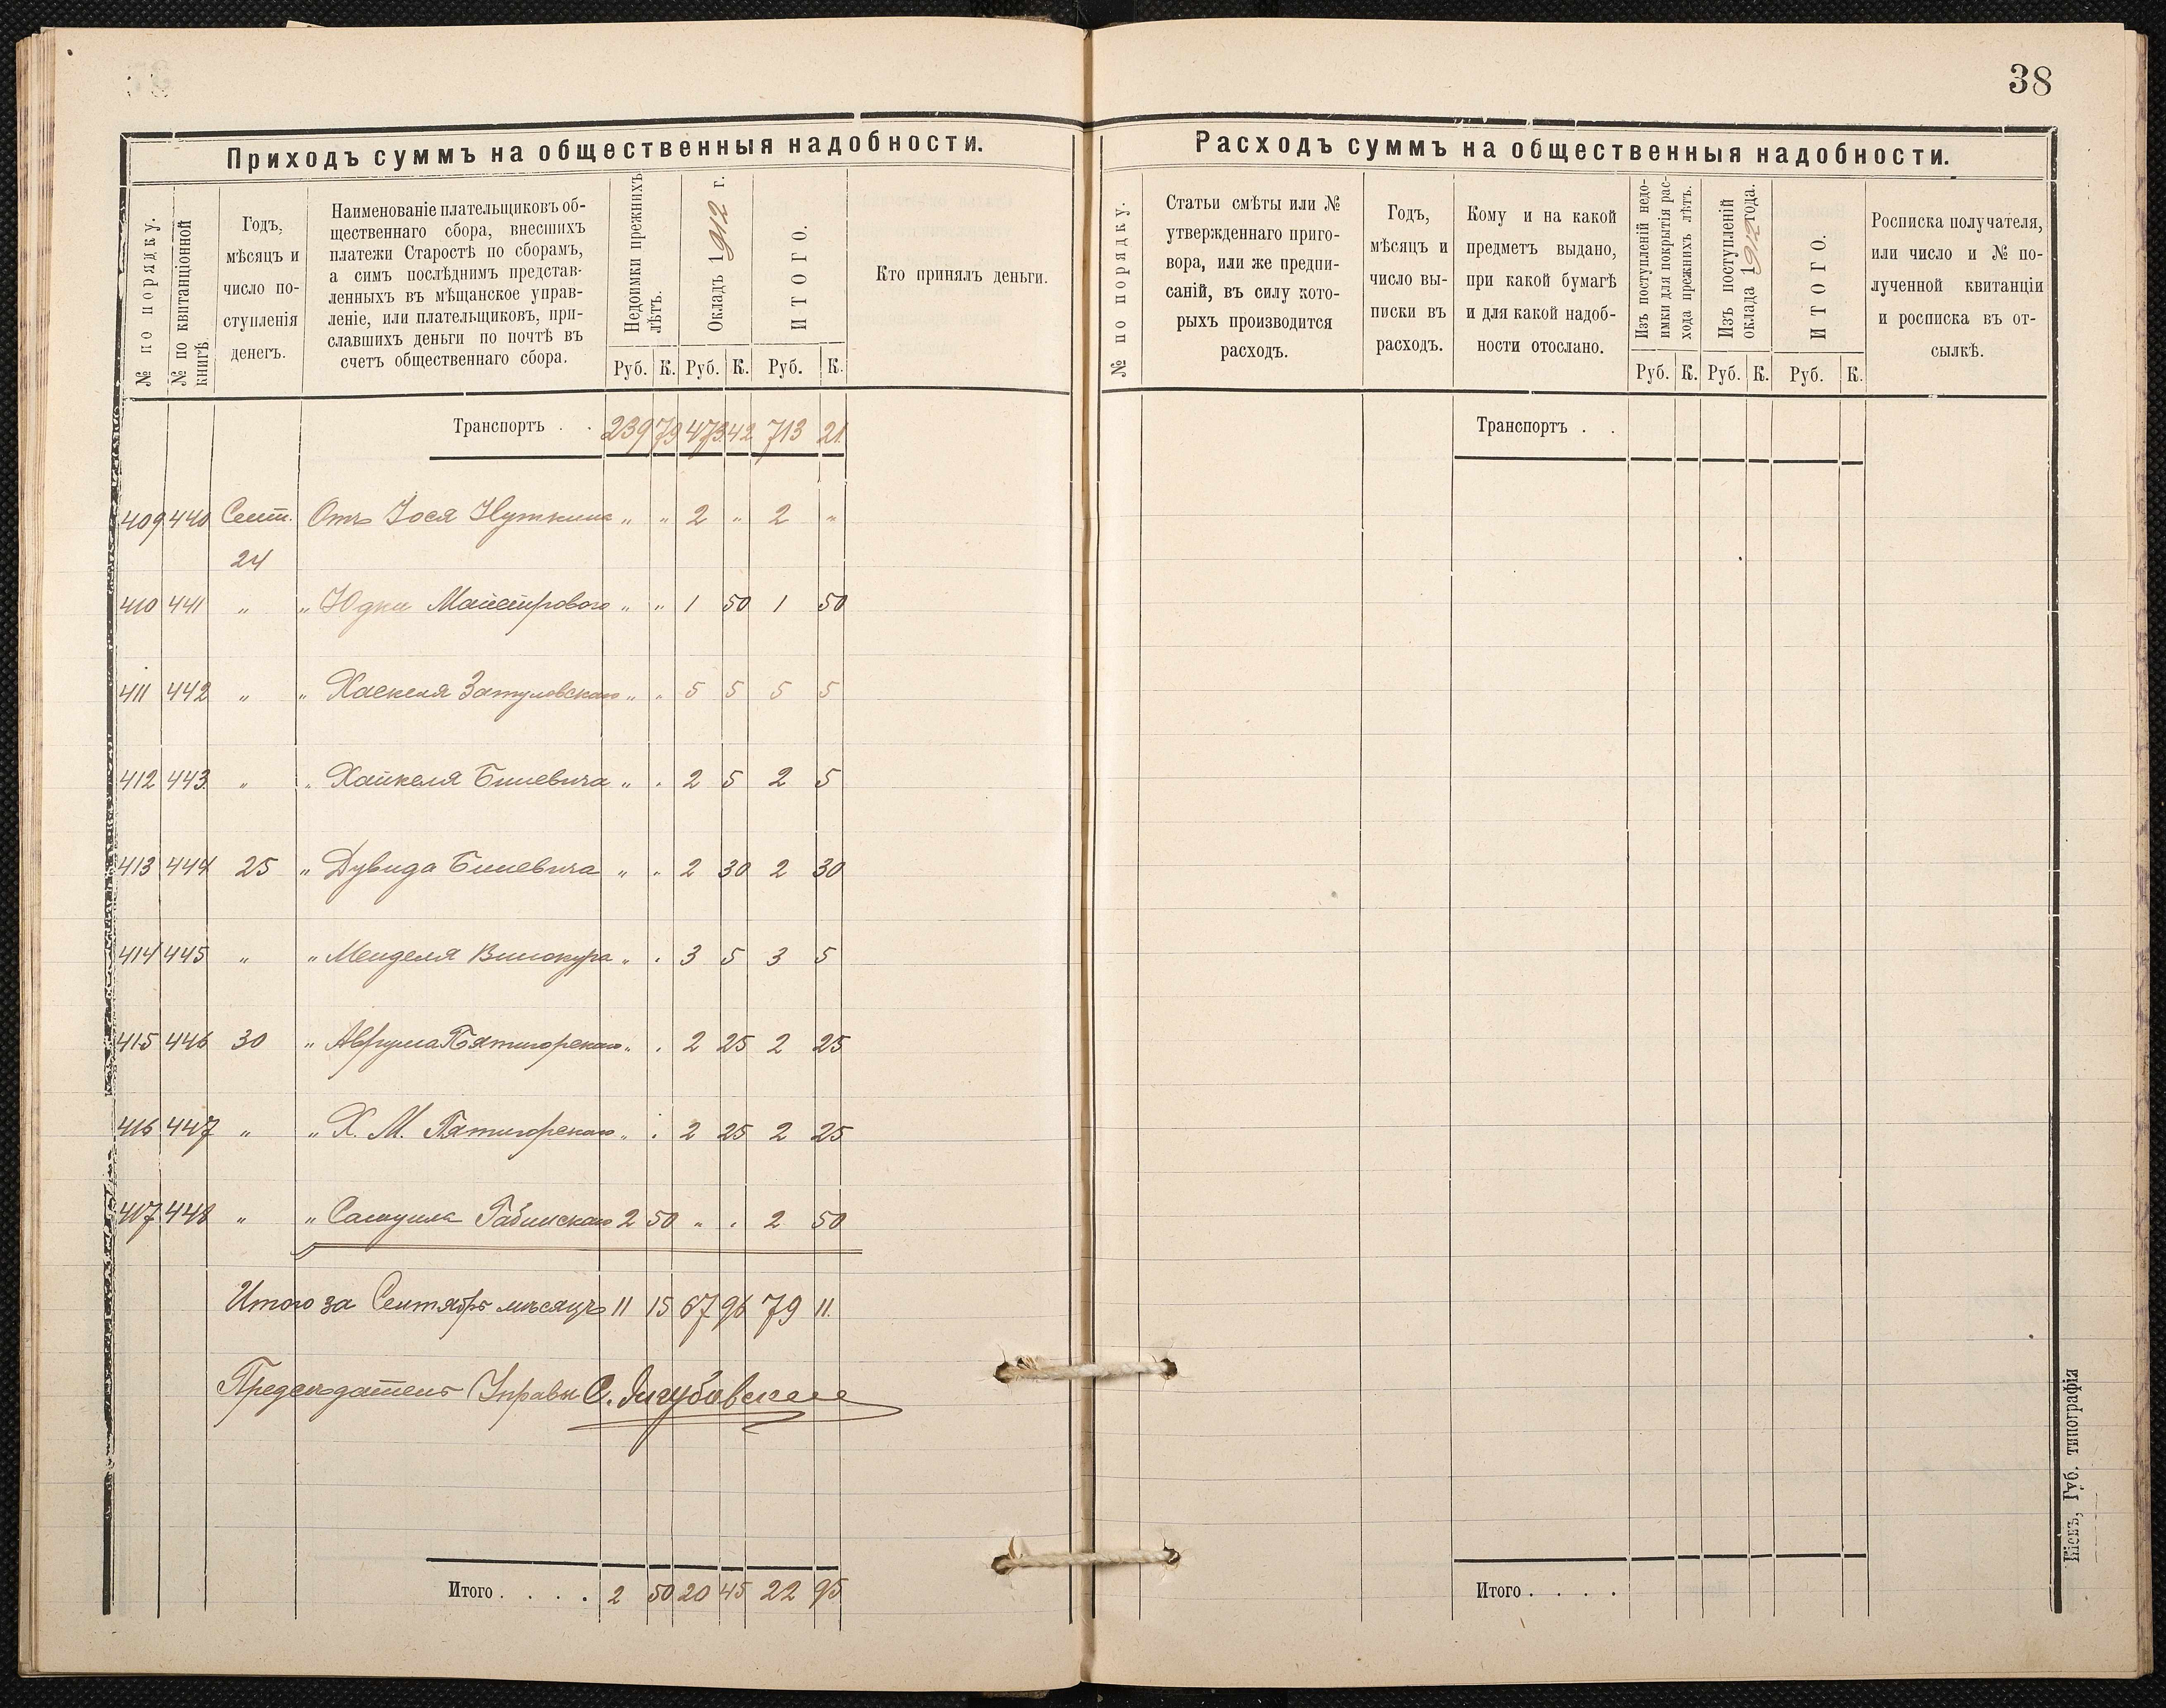 38
Приходъ суммъ на общественныя надобности.
№ по порядку.
№ по квитанціонной
книгѣ.
Годъ,
мѣсяцъ и
число по-
ступленія
денегъ.
Наименованіе плательщиковъ об-
щественнаго сбора, внесшихъ
платежи Старостѣ по сборамъ,
а симъ послѣднимъ представ-
ленныхъ въ мѣщанское управ-
леніе, или плательщиковъ, при-
славшихъ деньги по почтѣ въ
счетъ общественнаго сбора.
Недоимки прежнихъ
лѣтъ.
Окладъ 1912 г.
ИТОГО.
Руб. К. Руб. К. Руб. К.
Кто принялъ деньги.
Транспортъ . . 239 79 473 42 713 21
409 440 Сент. Отъ Іося Нуткина " " 2 " 2 "
24
410 441 " " Юдки Майстрового " " 1 50 1 50
411 442 " " Хаскеля Затуловскаго " " 5 5 5 5
412 443 " " Хайкеля Биневича " " 2 5 2 5
413 444 25 " Дувида Биневича " " 2 30 2 30
414 445 " " Менделя Винокура " " 3 5 3 5
415 446 30 " Аврума Пятигорскаго " " 2 25 2 25
416 447 " " Х. М. Пятигорскаго " " 2 25 2 25
417 448 " " Самуила Рабинскаго 2 50 " " 2 50
Итого за Сентябрь мѣсяцъ 11 15 67 96 79 11.
Предсѣдатель Управы С.
Итого . . . . 2 50 20 45 22 95
Расходъ суммъ на общественныя надобности.
№ по порядку.
Статьи смѣты или №
утвержденнаго приго-
вора, или же предпи-
саній, въ силу кото-
рыхъ производится
расходъ.
Годъ,
мѣсяцъ и
число вы-
писки въ
расходъ.
Кому и на какой
предметъ выдано,
при какой бумагѣ
и для какой надоб-
ности отослано.
Изъ поступленій недо-
имки для покрытія рас-
хода прежнихъ лѣтъ.
Изъ поступленій
оклада 1912 года.
ИТОГО.
Руб. К. Руб. К. Руб. К.
Росписка получателя,
или число и № по-
лученной квитанціи
и росписка въ от-
сылкѣ.
Транспортъ . .
Итого . . . .
Кіевъ, Губ. типографія